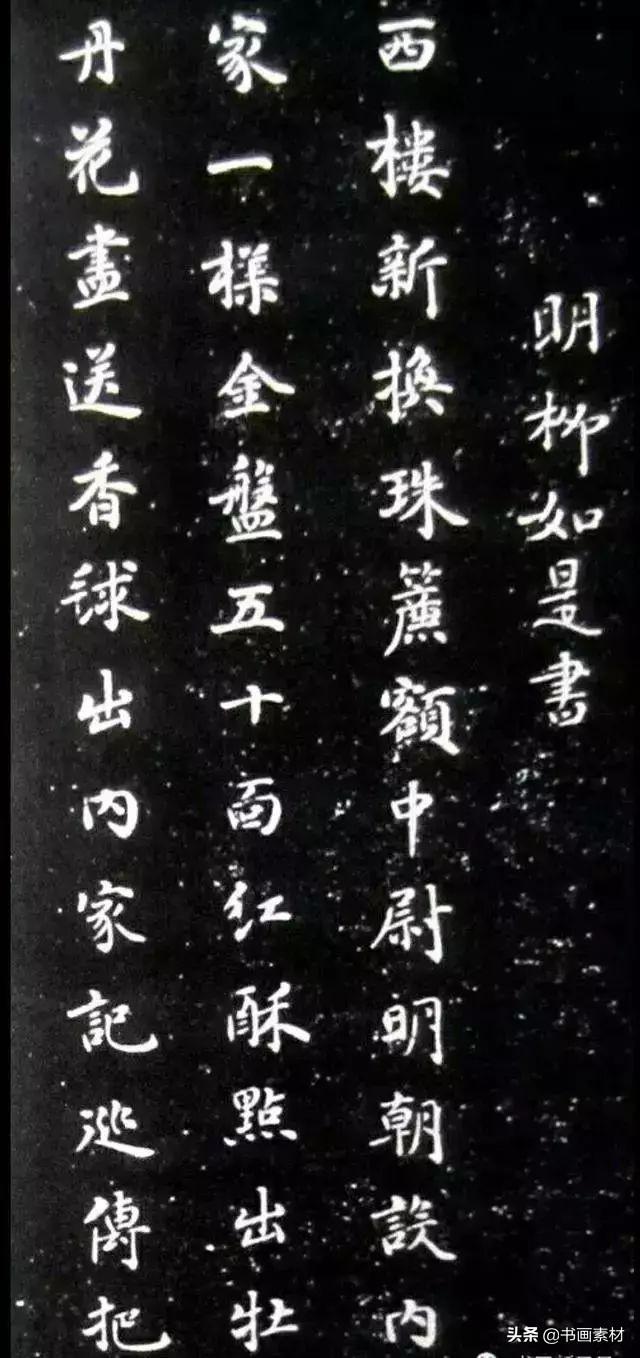 明柳如是書
西樓新換珠簾額中尉明朝設內
家一樣金盤五十面紅酥點出牡
丹花盡送香毬出內家記巡傳把
头条 @书画素材